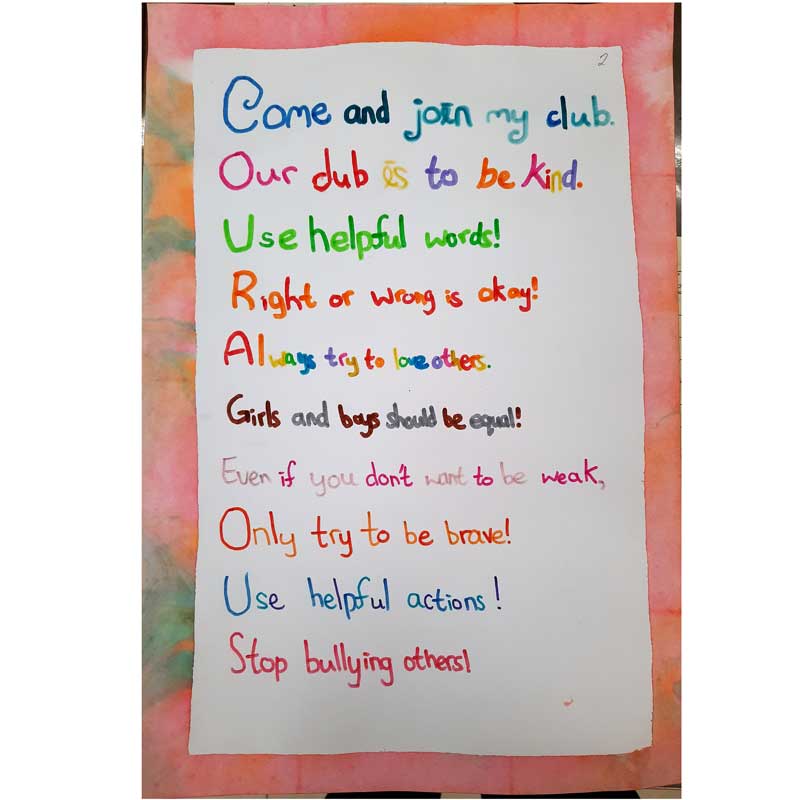 2
Come and join my club.
Our club is to be kind.
Use helpful words!
Right or wrong is okay!
Always try to love others.
Girls and boys should be equal!
Even if you don't want to be weak,
Only try to be brave!
Use helpful actions!
Stop bullying others!